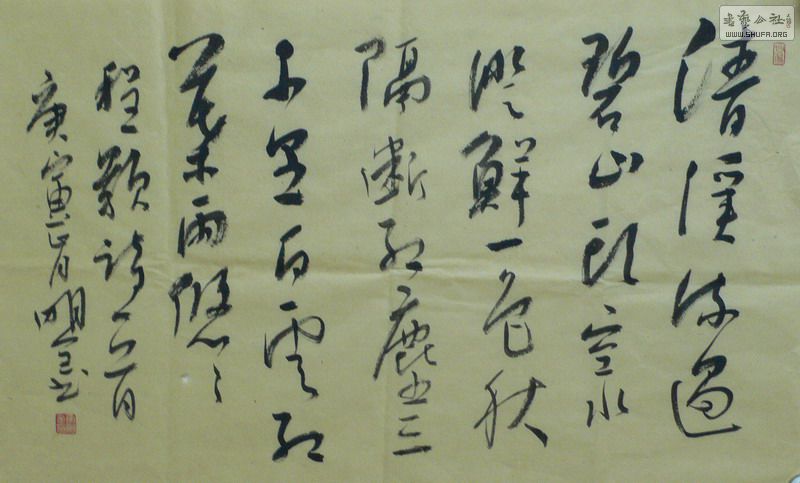 書藝公社
WWW.SHUFA.ORG
清溪流過
碧山頭空水
澄鮮一色秋
隔斷紅塵三
十里白雲紅
葉兩悠々
程顥詩一首
庚寅正月明书